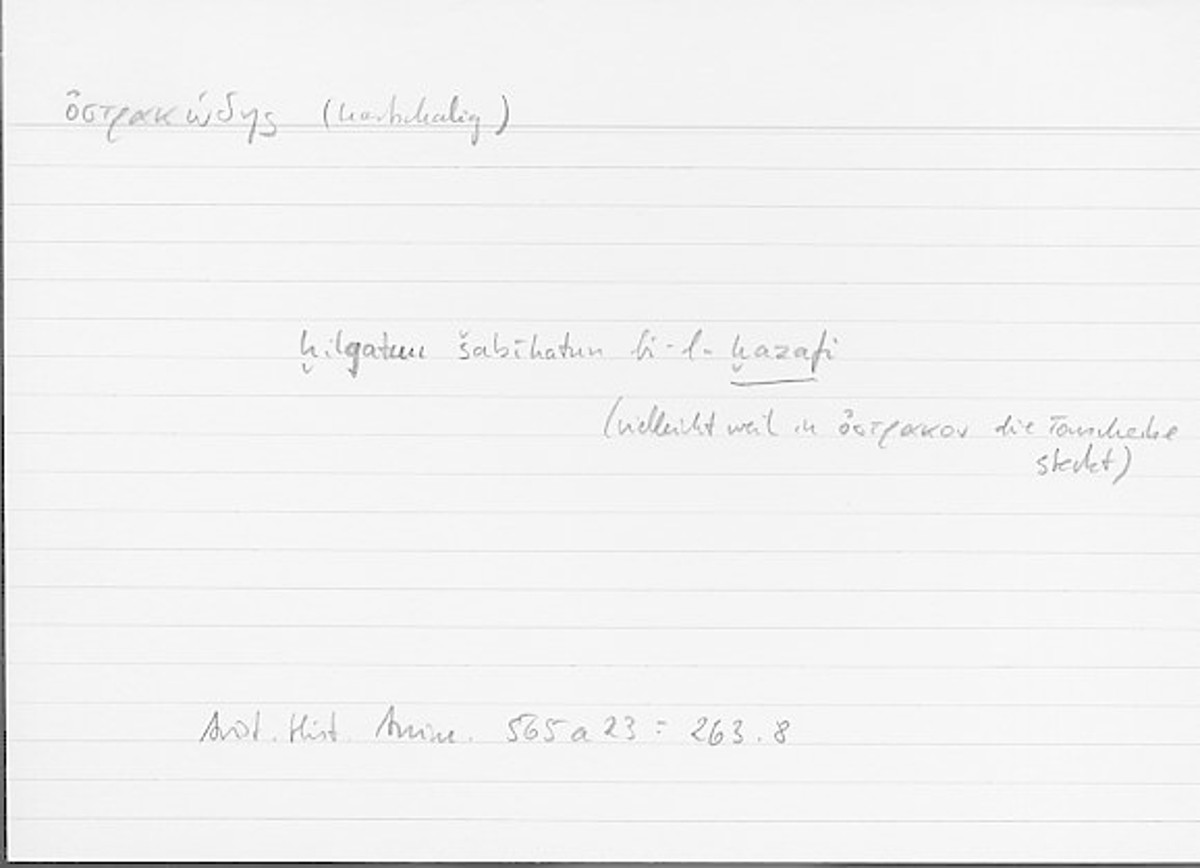 ὀστρακώδης (hartschalig)
ḫilqatun šabīhatun bi-l-ḫazafi
(vielleicht weil in ὄστρακον die Tonscherbe
steckt)
Arist. Hist. Anim. 565 a 23 = 263.8